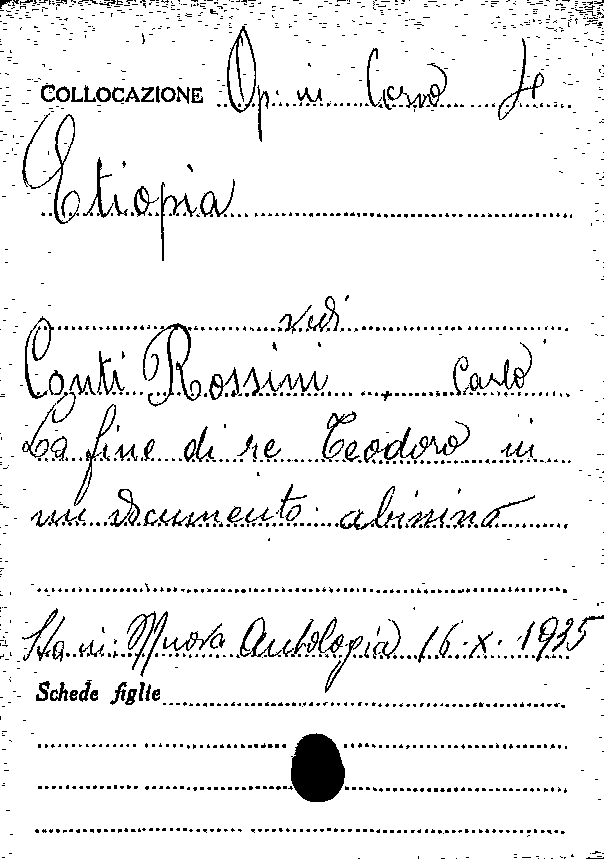 COLLOCAZIONE Op. in Corso
Etiopia
vedi
Conti Rossini, Carlo
La fine di re Teodoro in
un documento abissino
Sta in: Nuova Antologia 16.X.1935
Schede figlie